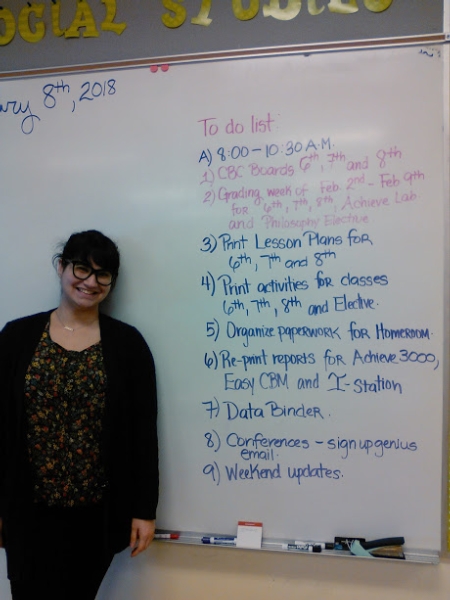 SOCIAL STUDIES
ary 8th, 2018
To do list:
A) 8:00 - 10:30 A.M.
1) CBC Boards 6th, 7th and 8th
2) Grading week of Feb 2nd - Feb 9th
for 6th, 7th, 8th, Achieve Lab
and Philosophy Elective
3) Print Lesson Plans for
6th, 7th and 8th
4) Print activities for classes
6th, 7th, 8th and Elective.
5) Organize paperwork for Homeroom.
6) Re-print reports for Achieve 3000,
Easy CBM and I-Station
7) Data Binder.
8) Conferences - signupgenius
email.
9) Weekend updates.